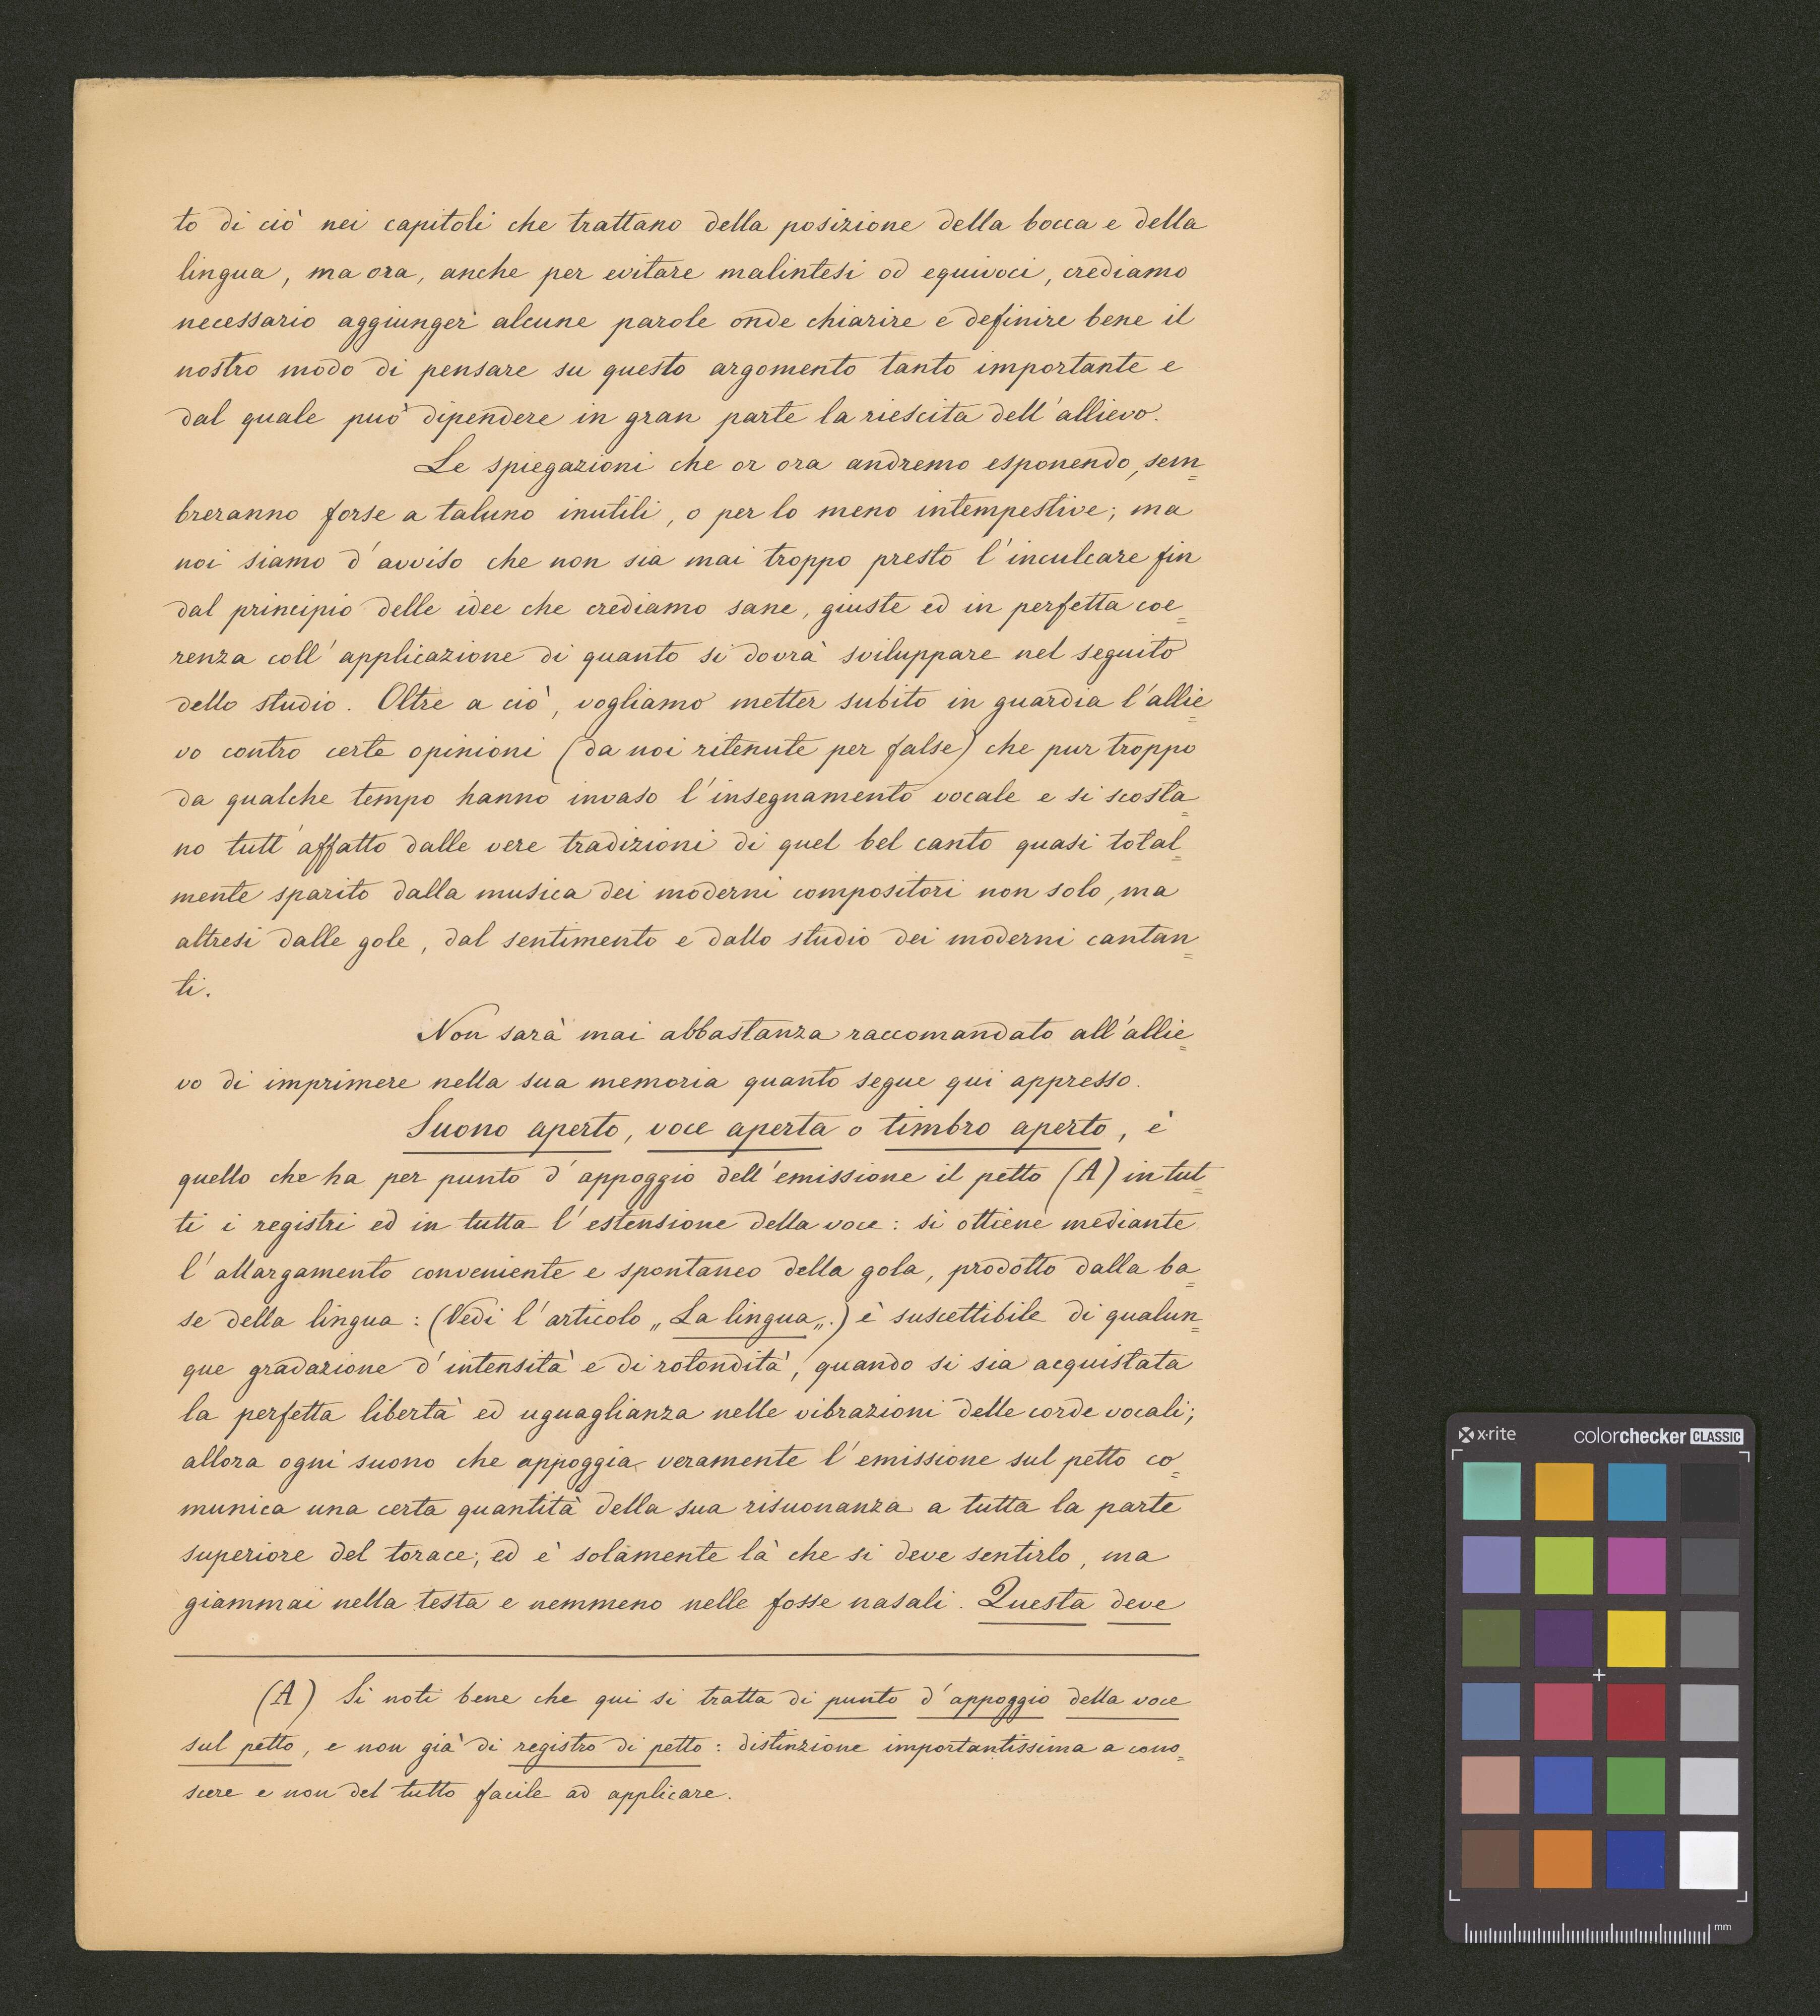 25
to di ciò nei capitoli che trattano della posizione della bocca e della
lingua, ma ora, anche per evitare malintesi od equivoci, crediamo
necessario aggiunger alcune parole onde chiarire e definire bene il
nostro modo di pensare su questo argomento tanto importante e
dal quale può dipendere in gran parte la riescita dell'allievo.
Le spiegazioni che or ora andremo esponendo, sem=
breranno forse a taluno inutili, o per lo meno intempestive; ma
noi siamo d'avviso che non sia mai troppo presto l'inculcare fin
dal principio delle idee che crediamo sane, giuste ed in perfetta coe=
renza coll'applicazione di quanto si dovrà sviluppare nel seguito
dello studio. Oltre a ciò, vogliamo metter subito in guardia l'allie=
vo contro certe opinioni (da noi ritenute per false) che pur troppo
da qualche tempo hanno invaso l'insegnamento vocale e si scosta=
no tutt'affatto dalle vere tradizioni di quel bel canto quasi total=
mente sparito dalla musica dei moderni compositori non solo, ma
altresì dalle gole, dal sentimento e dallo studio dei moderni cantan=
ti.
Non sarà mai abbastanza raccomandato all'allie=
vo di imprimere nella sua memoria quanto segue qui appresso.
Suono aperto, voce aperta o timbro aperto, è
quello che ha per punto d'appoggio dell'emissione il petto (A) in tut=
ti i registri ed in tutta l'estensione della voce: si ottiene mediante
l'allargamento conveniente e spontaneo della gola, prodotto dalla ba=
se della lingua: (Vedi l'articolo „La lingua„.) è suscettibile di qualun=
que gradazione d'intensità e di rotondità, quando si sia acquistata
la perfetta libertà ed uguaglianza nelle vibrazioni delle corde vocali;
allora ogni suono che appoggia veramente l'emissione sul petto co=
munica una certa quantità della sua risuonanza a tutta la parte
superiore del torace; ed è solamente là che si deve sentirlo, ma
giammai nella testa e nemmeno nelle fosse nasali. Questa deve
(A) Si noti bene che qui si tratta di punto d'appoggio della voce
sul petto, e non già di registro di petto: distinzione importantissima a cono=
scere e non del tutto facile ad applicare.
x·rite colorchecker CLASSIC
mm